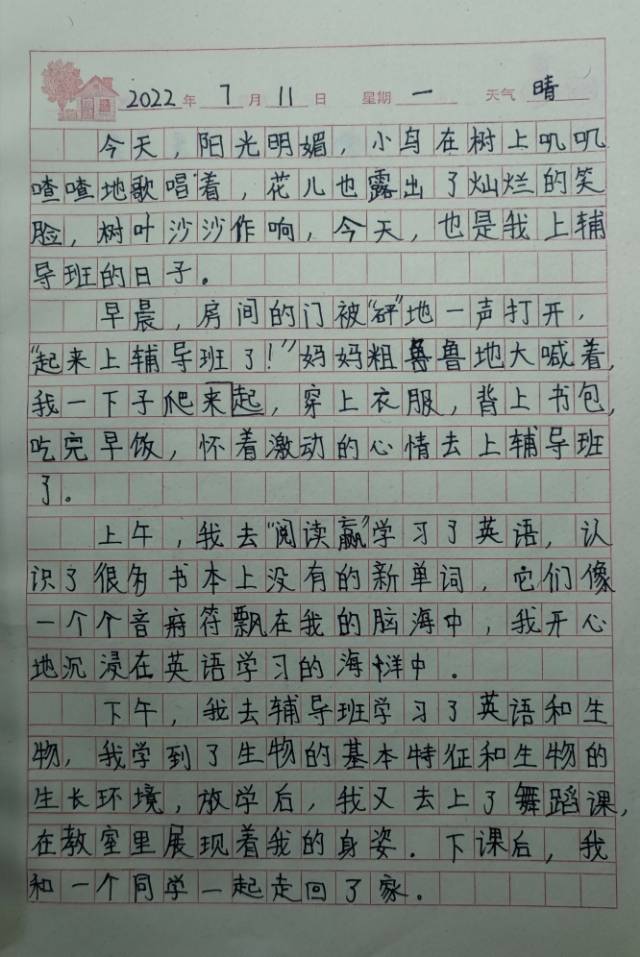 2022年7月11日 星期一 天气晴
今天，阳光明媚，小鸟在树上叽叽
喳喳地歌唱着，花儿也露出了灿烂的笑
脸，树叶沙沙作响，今天，也是我上辅
导班的日子。
早晨，房间的门被“砰”地一声打开，
“起来上辅导班了！”妈妈粗鲁地大喊着，
我一下子爬来起，穿上衣服，背上书包，
吃完早饭，怀着激动的心情去上辅导班
了。
上午，我去“阅读赢”学习了英语，认
识了很多书本上没有的新单词，它们像
一个个音府符飘在我的脑海中，我开心
地沉浸在英语学习的海洋中．
下午，我去辅导班学习了英语和生
物，我学到了生物的基本特征和生物的
生长环境，放学后，我又去上了舞蹈课，
在教室里展现着我的身姿．下课后，我
和一个同学一起走回了家．